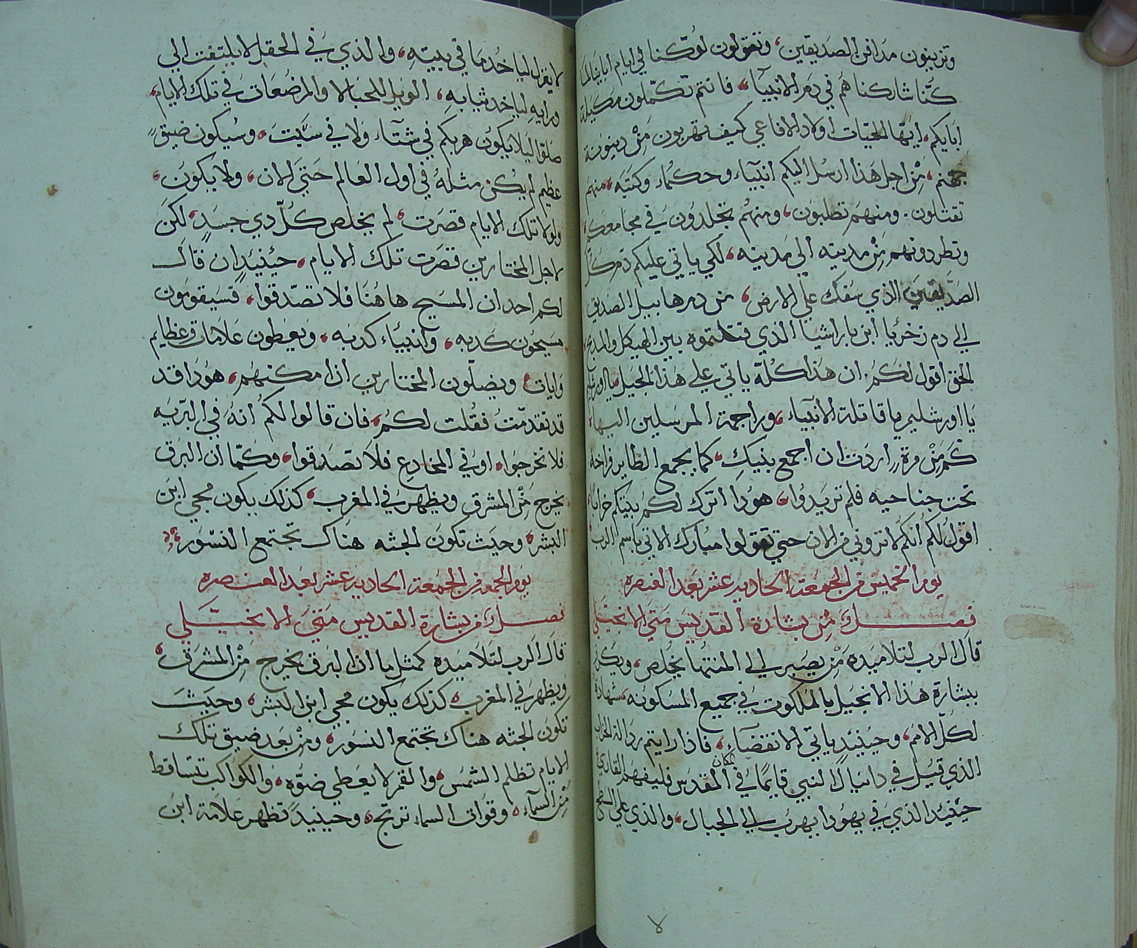 وتزينون مدافن الصديقين، وتقولون لو كنا في ايام اباينا لما
كنا شاركناهم في دم الانبياء، فانتم تكملون مكيلة
ابايكم، ايها الحيات اولاد الافاعي كيف تهربون من دينونة
جهنم، من اجل هذا ارسل اليكم انبياء وحكماء وكتبه، منهم
تقتلون، ومنهم تصلبون، ومنهم تجلدون في مجامعكم
وتطردونهم من مدينه الي مدينه، لكي ياتي عليكم دم كل
الصديقين الذي سفك علي الارض، من دم هابيل الصديق
الي دم زخريا ابن باراشيا الذي قتلتموه بين الهيكل والمذبح
الحق اقول لكم، ان هذا كله ياتي علي هذا الجيل، يااورشليم
يااورشليم يا قاتلة الانبياء، وراجمة المرسلين اليها
كم من مرة اردت ان اجمع بنيك، كما يجمع الطاير فراخه
تحت جناحيه فلم تريدوا، هوذا اترك لكم بيتكم خرابا
اقول لكم انكم لا تروني من الان حتي تقولوا مبارك الاتي باسم الرب
يوم الخميس من الجمعة الحاديه عشر بعد العنصره
فصل من بشارة القديس متي الانجيلي
قال الرب لتلاميده من يصبر الي المنتها يخلص، ويكرز
ببشارة هذا الانجيل بالملكوت في جميع المسكونه شهادة
لكل الامم، وحينيد ياتي الانقضاء، فاذا رايتم رذالة الخراب
الذي قيل في دانيال النبي قايما في المكان المقدس فليفهم القاري
حينيد الذي في يهودا يهرب الي الجبال، والذي علي السطح
لا ينزل لياخد ما في بيته، والذي في الحقل لا يلتفت الي
ورايه لياخد ثيابه، الويل للحبالا والمرضعات في تلك الايام،
صلوا ليلا يكون هربكم في شتاء ولا في سبت، وسيكون ضيق
عظيم لم يكن مثله في اول العالم حتي الان، ولا يكون،
ولولا تلك الايام قصرت، لم يخلص كل دي جسد، لكن
لاجل المختارين قصرت تلك الايام، حينيد ان قال
لكم احد ان المسيح هاهنا فلا تصدقوا، فسيقومون
مسيحون كدبه، وانبياء كدبه، ويعطون علامات عظايم
وايات، ويضلون المختارين اذا امكنهم، هوذا قد
قد تقدمت فقلت لكم، فان قالوا لكم انه في البريه
فلا تخرجوا، او في المخادع فلا تصدقوا، وكما ان البرق
يخرج من المشرق ويظهر في المغرب، كذلك يكون مجي ابن
البشر، وحيث تكون الجثه هناك تجتمع النسور
يوم الجمعه من الجمعة الحاديه عشر بعد العنصره
فصل من بشارة القديس متي الانجيلي
قال الرب لتلاميده كمثل ما ان البرق يخرج من المشرق،
ويظهر في المغرب، كذلك يكون مجي ابن البشر، وحيث
تكون الجثه هناك تجتمع النسور، ومن بعد ضيق تلك
الايام تظلم الشمس، والقمر لا يعطي ضوه، والكواكب تتساقط
من السماء، وقوات السماء ترتج، وحينيد تظهر علامة ابن